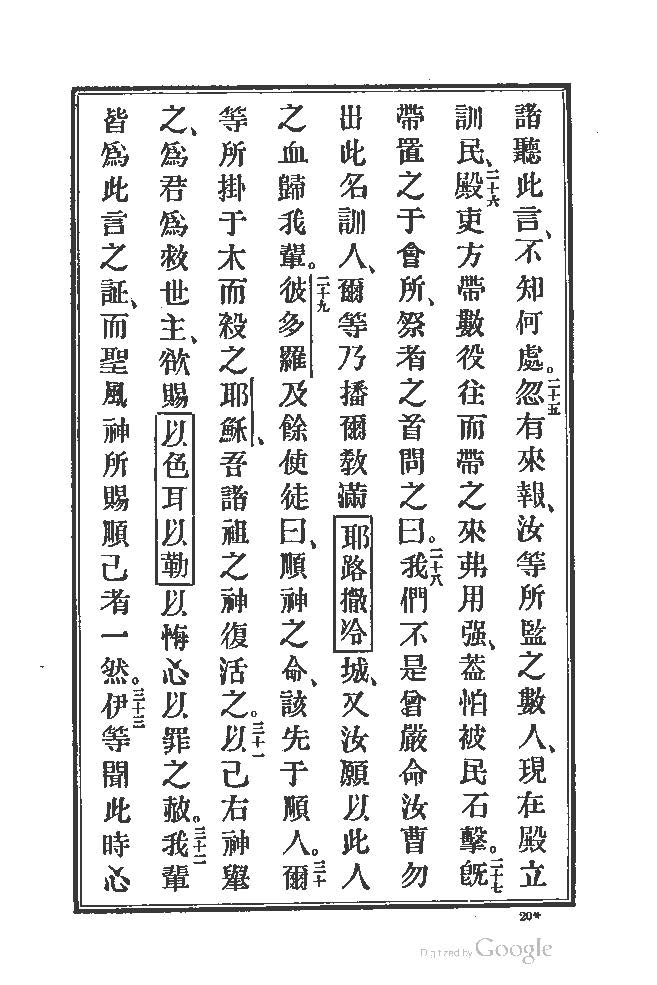 諸聽此言、不知何處。二十五忽有來報、汝等所監之數人、現在殿立
訓民、二十六殿吏方帶數役往而帶之來弗用强、葢怕被民石擊。二十七旣
帶置之于會所、祭者之首問之曰。二十八我們不是曾嚴命汝曹勿
出此名訓人、爾等乃播爾敎滿耶路撒冷城、又汝願以此人
之血歸我輩。二十九彼多羅及餘使徒曰、順神之命、該先于順人。三十爾
等所掛于木而殺之耶穌、吾諸祖之神復活之。三十一以己右神舉
之、爲君爲救世主、欲賜以色耳以勒以悔心以罪之赦。三十二我輩
皆爲此言之証、而聖風神所賜順己者一然。三十三伊等聞此時心
20*
Digitized by Google